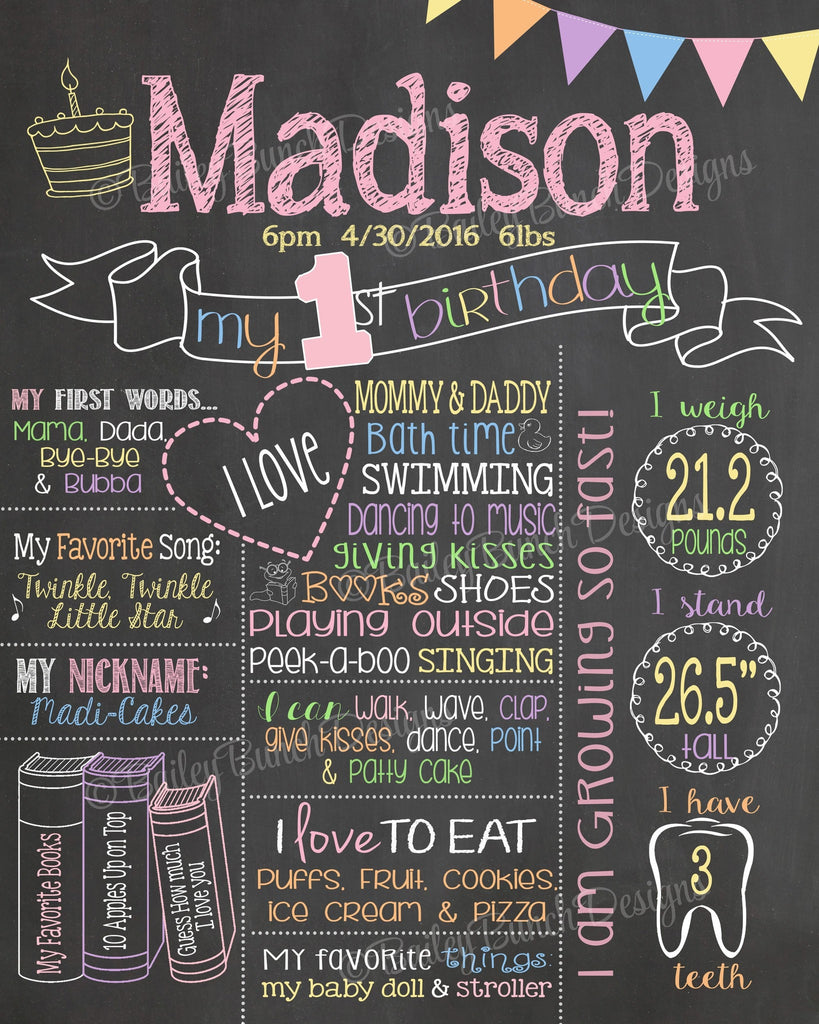 Madison
6pm 4/30/2016 6lbs
my 1st birthday
MY FIRST WORDS...
Mama, Dada,
Bye-Bye
& Bubba
My Favorite Song:
Twinkle, Twinkle
Little Star
MY NICKNAME:
Madi-Cakes
My Favorite Books
10 Apples Up on Top
Guess How much
I love you
I LOVE
MOMMY & DADDY
Bath time
SWIMMING
Dancing to music
giving kisses
BOOKS SHOES
Playing outside
Peek-a-boo SINGING
I can walk, wave, clap,
give kisses, dance, point
& patty cake
I love TO EAT
Puffs, Fruit, Cookies,
ice cream & pizza
MY favorite things:
my baby doll & stroller
I am GROWING SO fast!
I weigh
21.2
POUNDS
I stand
26.5”
tall
I have
3
teeth
© Bailey Bunch Designs
© Bailey Bunch Designs
© Bailey Bunch Designs
© Bailey Bunch Designs
© Bailey Bunch Designs